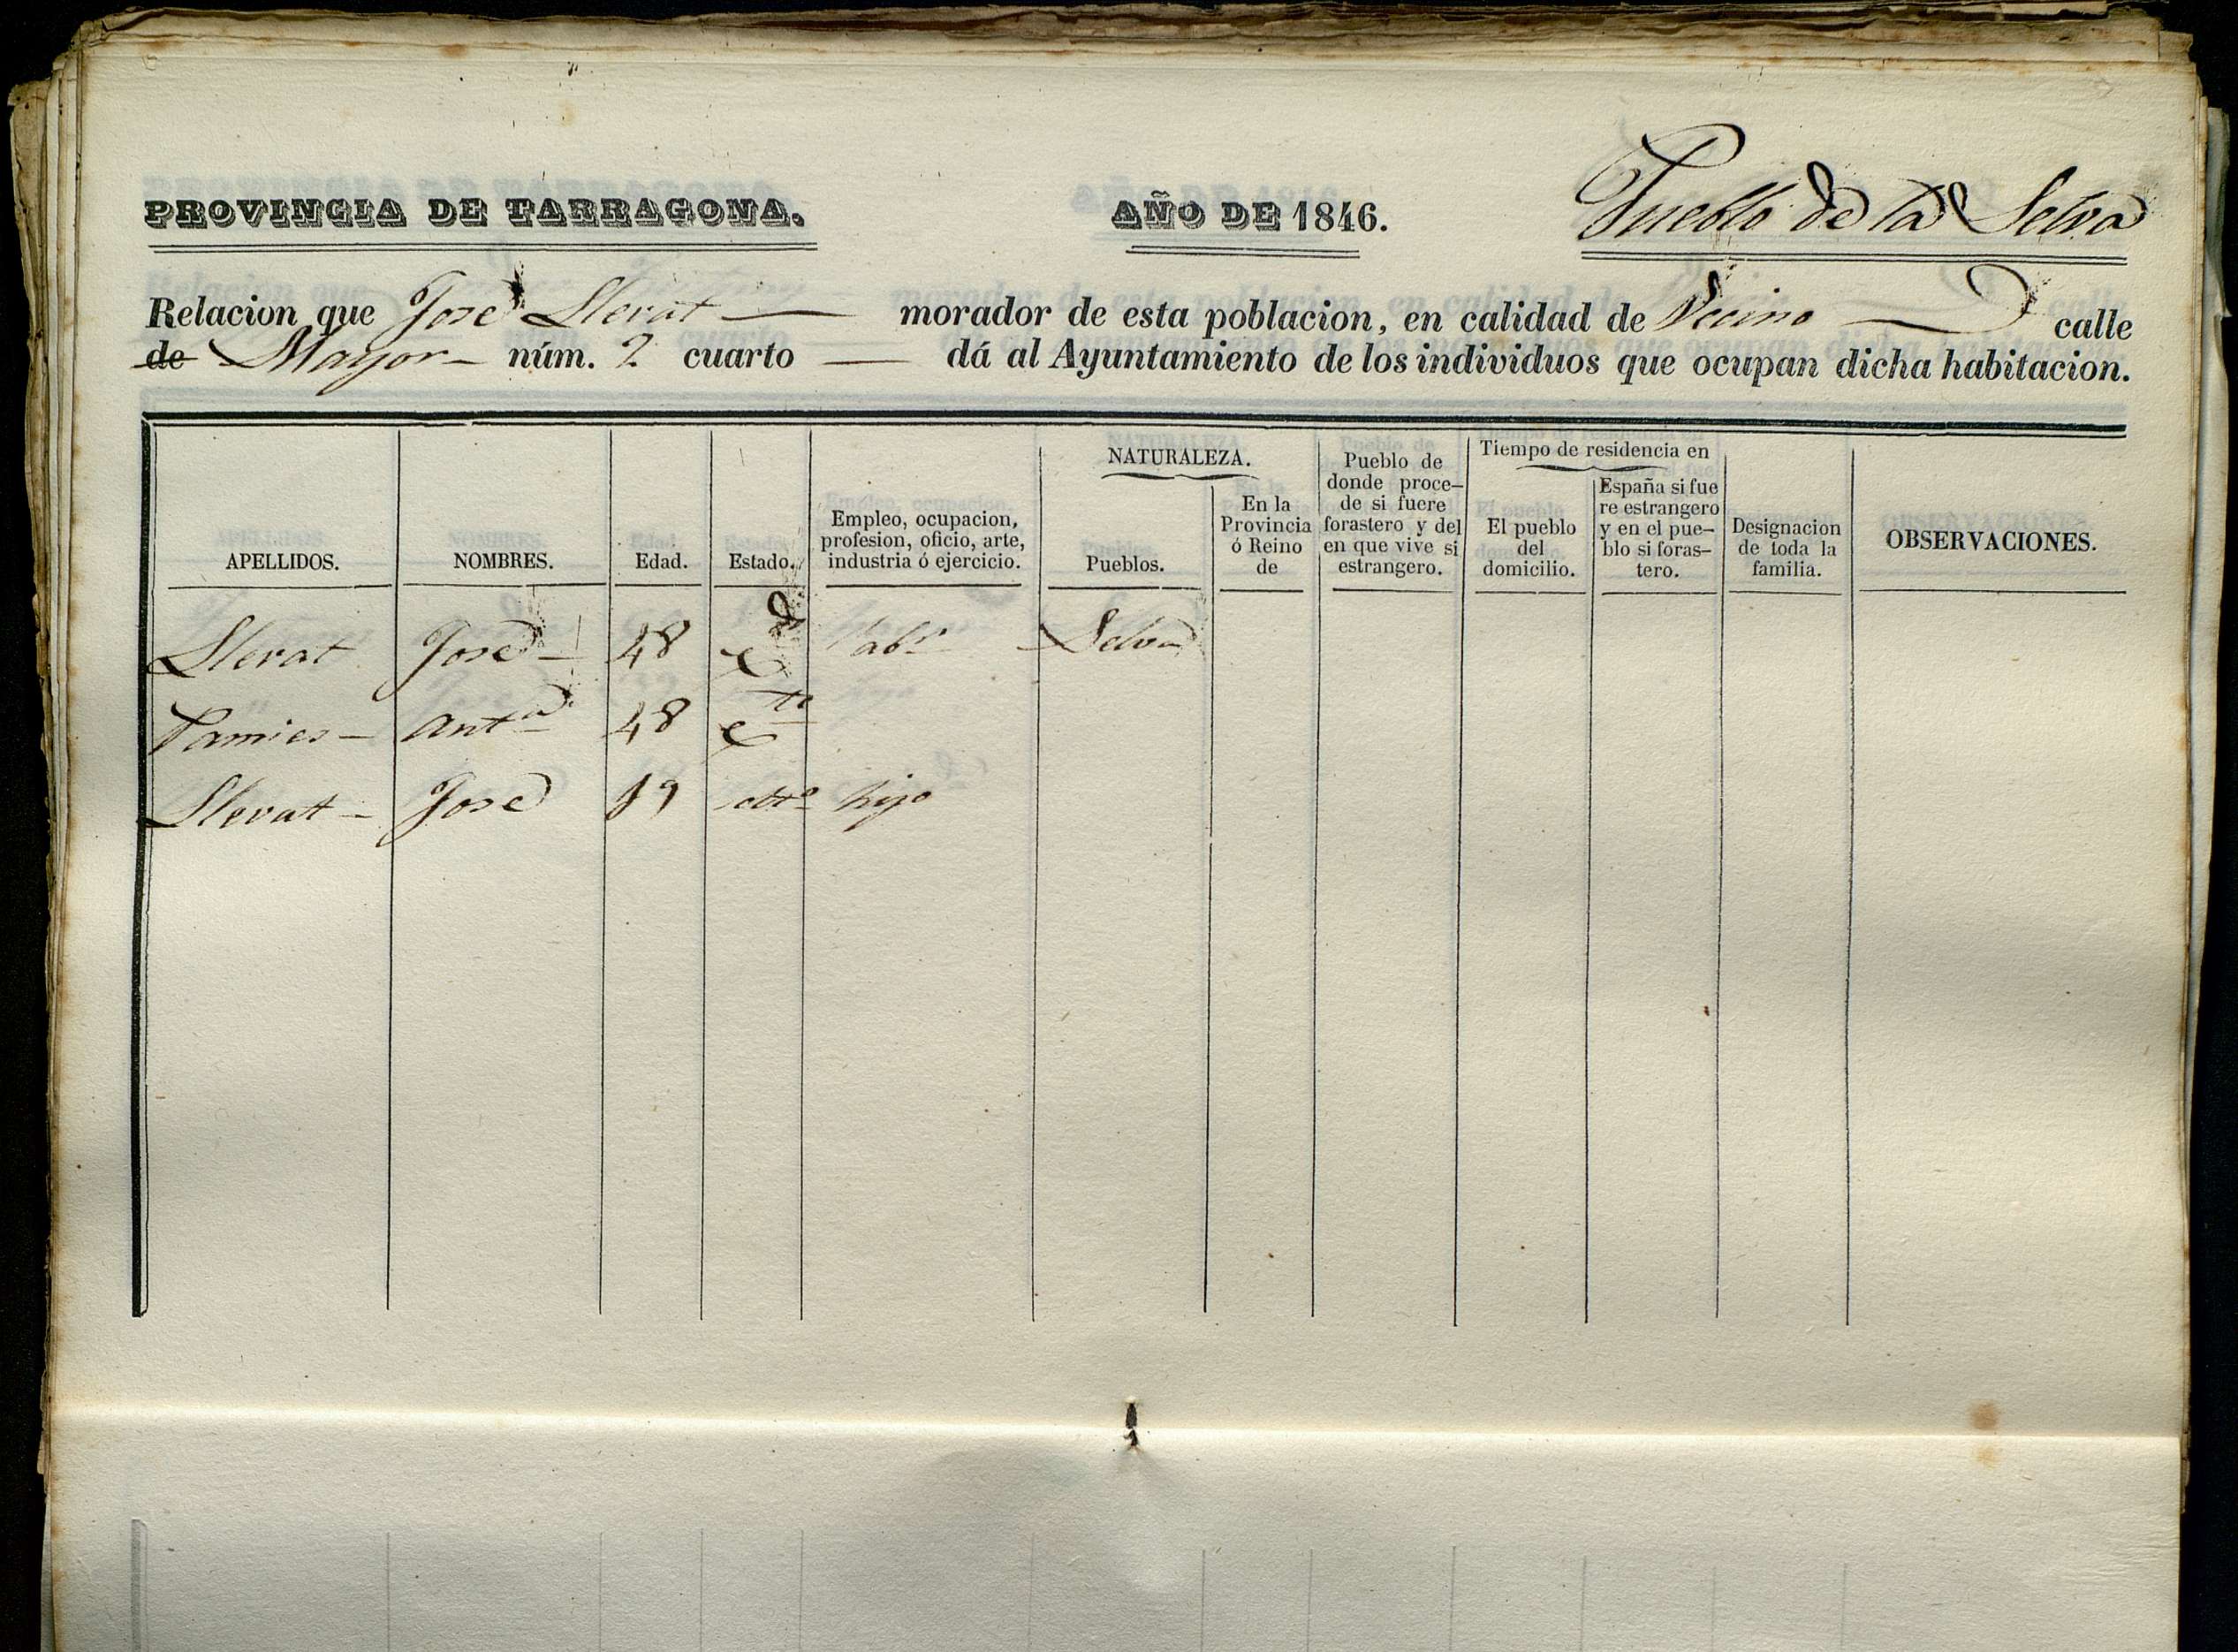 PROVINCIA DE TARRAGONA. AÑO DE 1846. Pueblo de la Selva
Relacion que José Llerat — morador de esta poblacion, en calidad de Vecino — calle
de Mayor - núm. 2 cuarto — dá al Ayuntamiento de los individuos que ocupan dicha habitacion.
APELLIDOS.
NOMBRES.
Edad.
Estado.
Empleo, ocupacion,
profesion, oficio, arte,
industria ó ejercicio.
NATURALEZA.
Pueblos.
En la
Provincia
ó Reino
de
Pueblo de
donde proce-
de si fuere
forastero y del
en que vive si
estrangero.
Tiempo de residencia en
El pueblo
del
domicilio.
España si fue
re estrangero
y en el pue-
blo si foras-
tero.
Designacion
de toda la
familia.
OBSERVACIONES.
Llerat José - 48 Labr - Selva
Pamies - Anta 48
Llerat - José 19 hijo